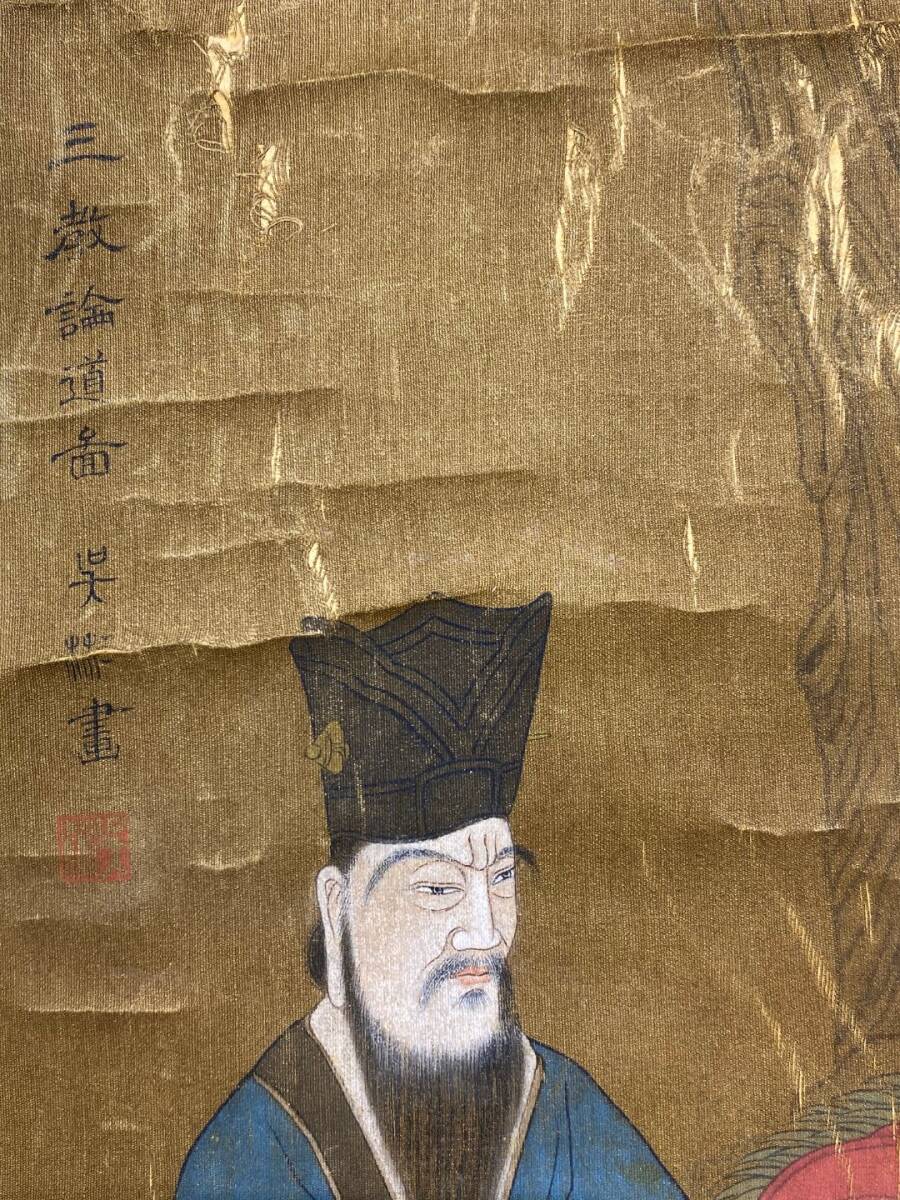 三教論道啚 吳彬畫